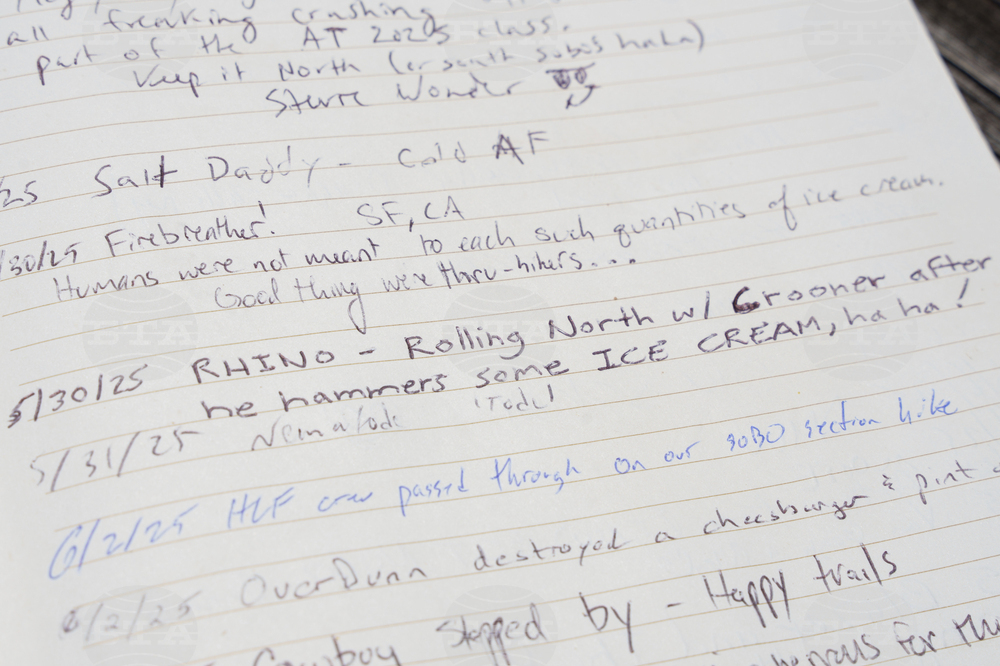 all freaking crashing
part of the AT 2025 class.
Keep it North (or south sobos haha)
Wonder
25 Salt Daddy - Cold AF
/30/25 Firebreather! SF, CA
Humans were not meant to each such quantities of ice cream.
Good thing we're thru-hikers...
5/30/25 RHINO - Rolling North w/ Crooner after
he hammers some ICE CREAM, ha ha!
5/31/25 Nematode 'Todd'
6/2/25 HLF crew passed through on our SOBO section hike
6/2/25 OverDunn destroyed a cheesburger & pint
Cowboy stopped by - Happy trails
for
BTA